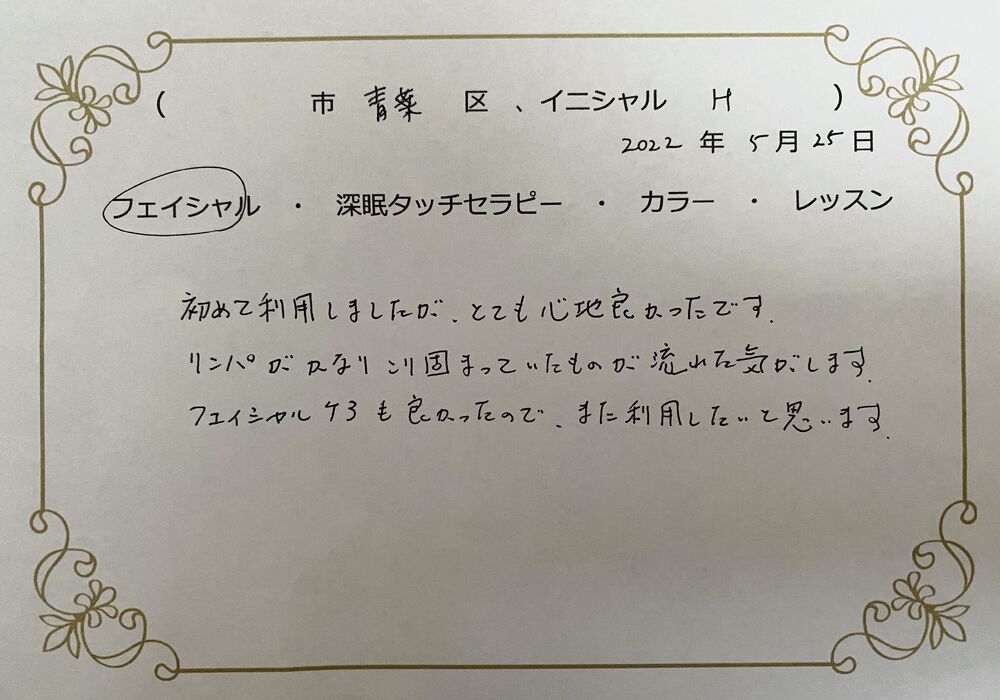 ( 市 青葉 区 、イニシャル H )
2022 年 5月 25日
フェイシャル ・ 深眠タッチセラピー ・ カラー ・ レッスン
初めて利用しましたが、とても心地良かったです。
リンパがかなりこり固まっていたものが流れた気がします。
フェイシャルケアも良かったので、また利用したいと思います。